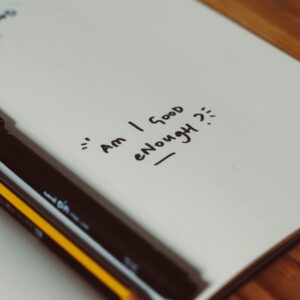 Am I GOOD
eNOUGH?